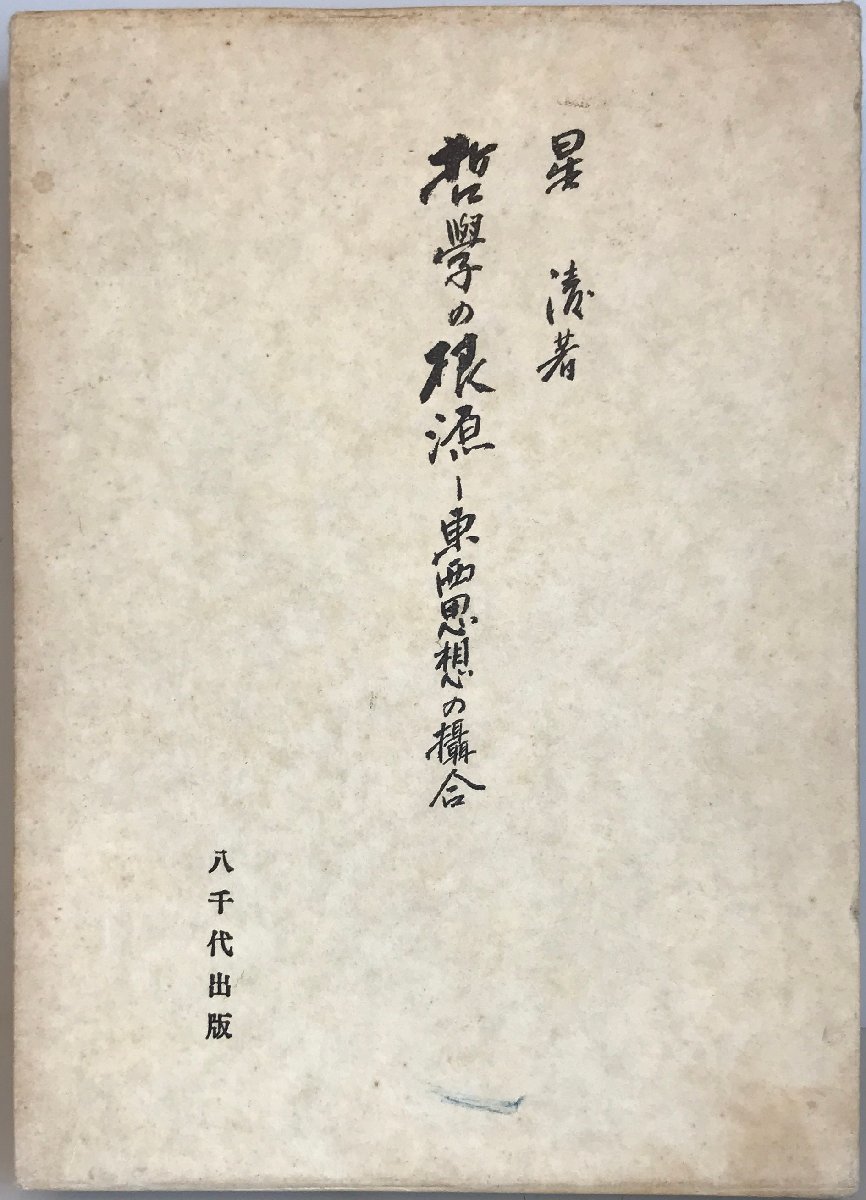 星 清著
哲學の根源―東西思想の攝合
八千代出版